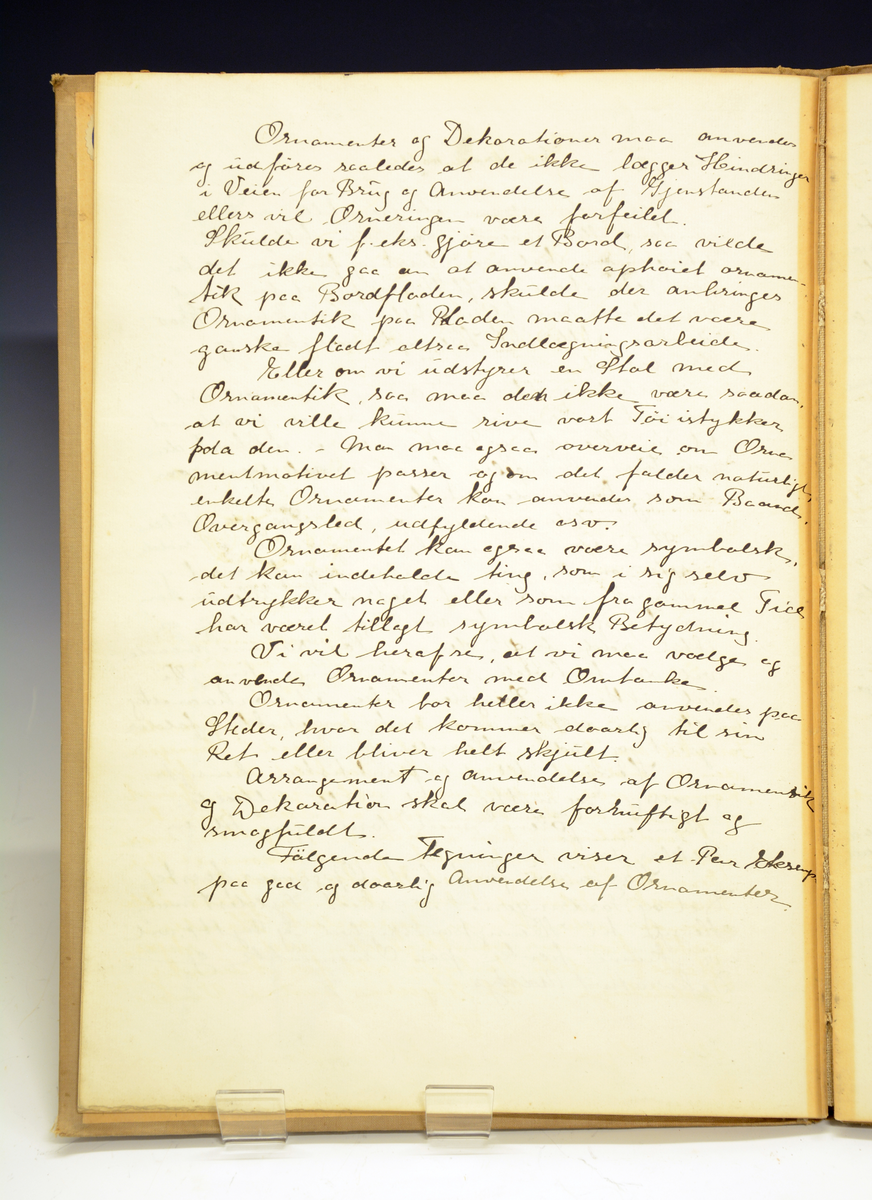 Ornamenter og Dekorationer maa anvendes
og udföres saaledes at de ikke lægger Hindringer
i Veien for Brug og Anvendelse af Gjenstanden
ellers vil Orneringen være forfeilet.
Skulde vi f. eks. gjöre et Bord, saa vilde
det ikke gaa an at anvende ophöiet ornamen-
tik paa Bordfladen, skulde der anbringes
Ornamentik paa Pladen maatte det være
ganske fladt altsaa Indlægningsarbeide.
Eller om vi udstyrer en Stol med
Ornamentik, saa maa den ikke være saadan,
at vi ville kunne rive vort Töi istykker
paa den. - Man maa ogsaa overveie om Orna
mentmotivet passer og om det falder naturligt,
enkelte Ornamenter kan anvendes som Baand,
Overgangsled, udfyldende osv.
Ornamentet kan ogsaa være symbolsk,
det kan indeholde ting, som i sig selv
udtrykker noget eller som fra gammel Tid
har været tillagt symbolsk Betydning.
Vi vil heraf se, at vi maa vælge og
anvende Ornamenter med Omtanke.
Ornamenter bor heller ikke anvendes paa
Steder, hvor det kommer daarlig til sin
Ret eller bliver helt skjült.
Arrangement og anvendelse af Ornamentik
og Dekoration skal være fornuftigt og
smagfuldt.
Fölgende Tegninger viser et Par Eksemp
paa god og daarlig Anvendelse af Ornamenter.